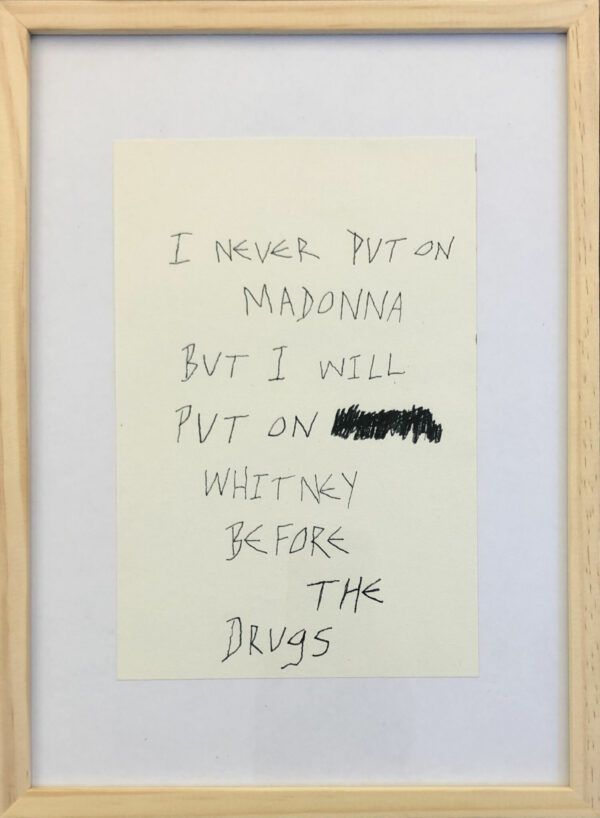 I NEVER PUT ON
MADONNA
BUT I WILL
PUT ON
WHITNEY
BEFORE
THE
DRUgS